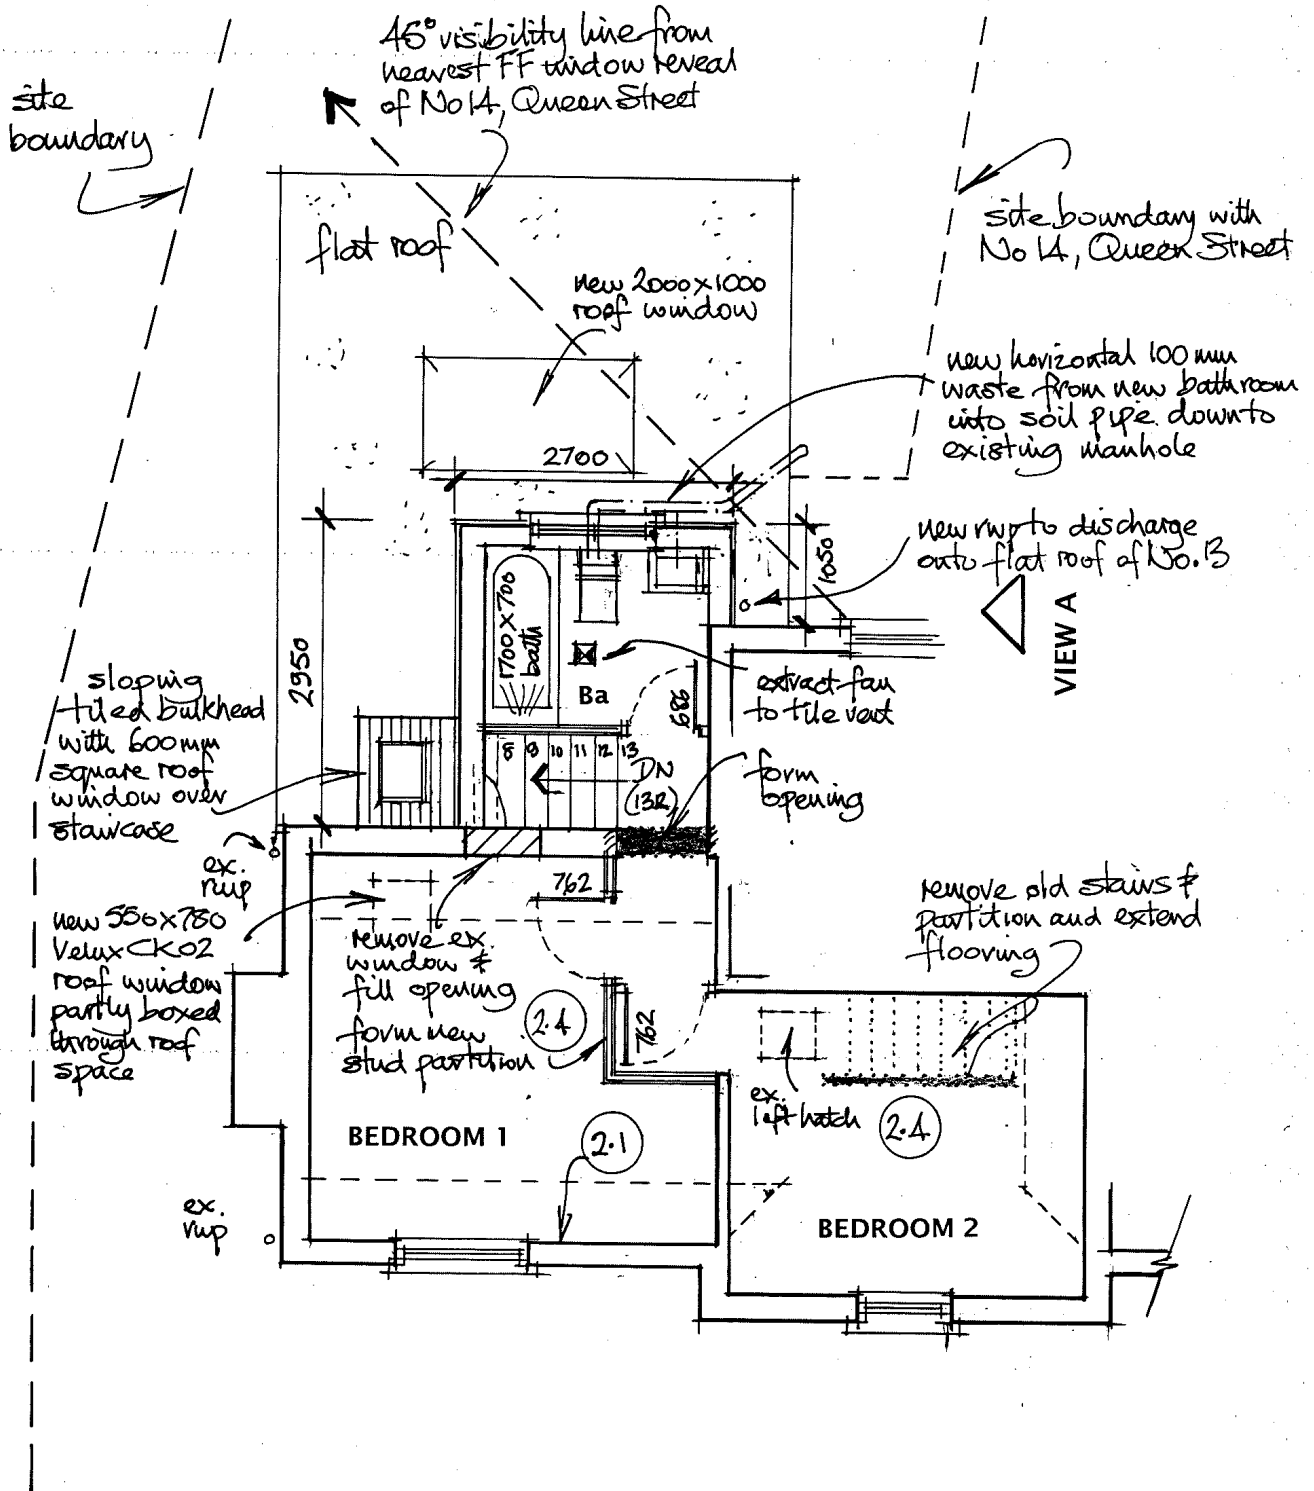 45° visibility line from
nearest FF window reveal
of No 14, Queen Street
site
boundary
site boundary with
No 14, Queen Street
flat roof
new 2000x1000
roof window
new horizontal 100mm
waste from new bathroom
into soil pipe down to
existing manhole
2700
new rwp to discharge
onto flat roof of No.13
1050
VIEW A
1700x700
bath
2950
Ba
686
extract fan
to tile vent
sloping
tiled bulkhead
with 600mm
square roof
window over
staircase
8 9 10 11 12 13
DN
(13R)
form
opening
ex.
rwp
762
new 550x780
Velux CK02
roof window
partly boxed
through roof
space
remove ex.
window &
fill opening
form new
stud partition
2.4
762
remove old stairs &
partition and extend
flooring
ex.
loft hatch
2.4
BEDROOM 1
2.1
ex.
rwp
BEDROOM 2